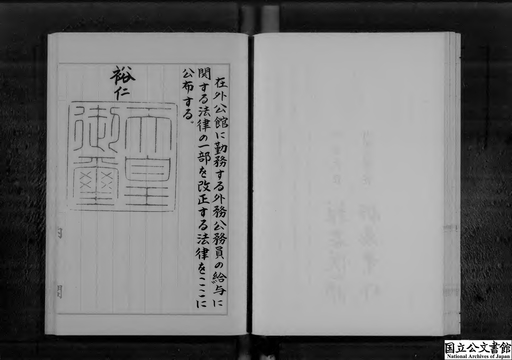 在外公館に勤務する外務公務員の給与に
関する法律の一部を改正する法律をここに
公布する。
裕仁
天皇
御璽
国立公文書館
National Archives of Japan